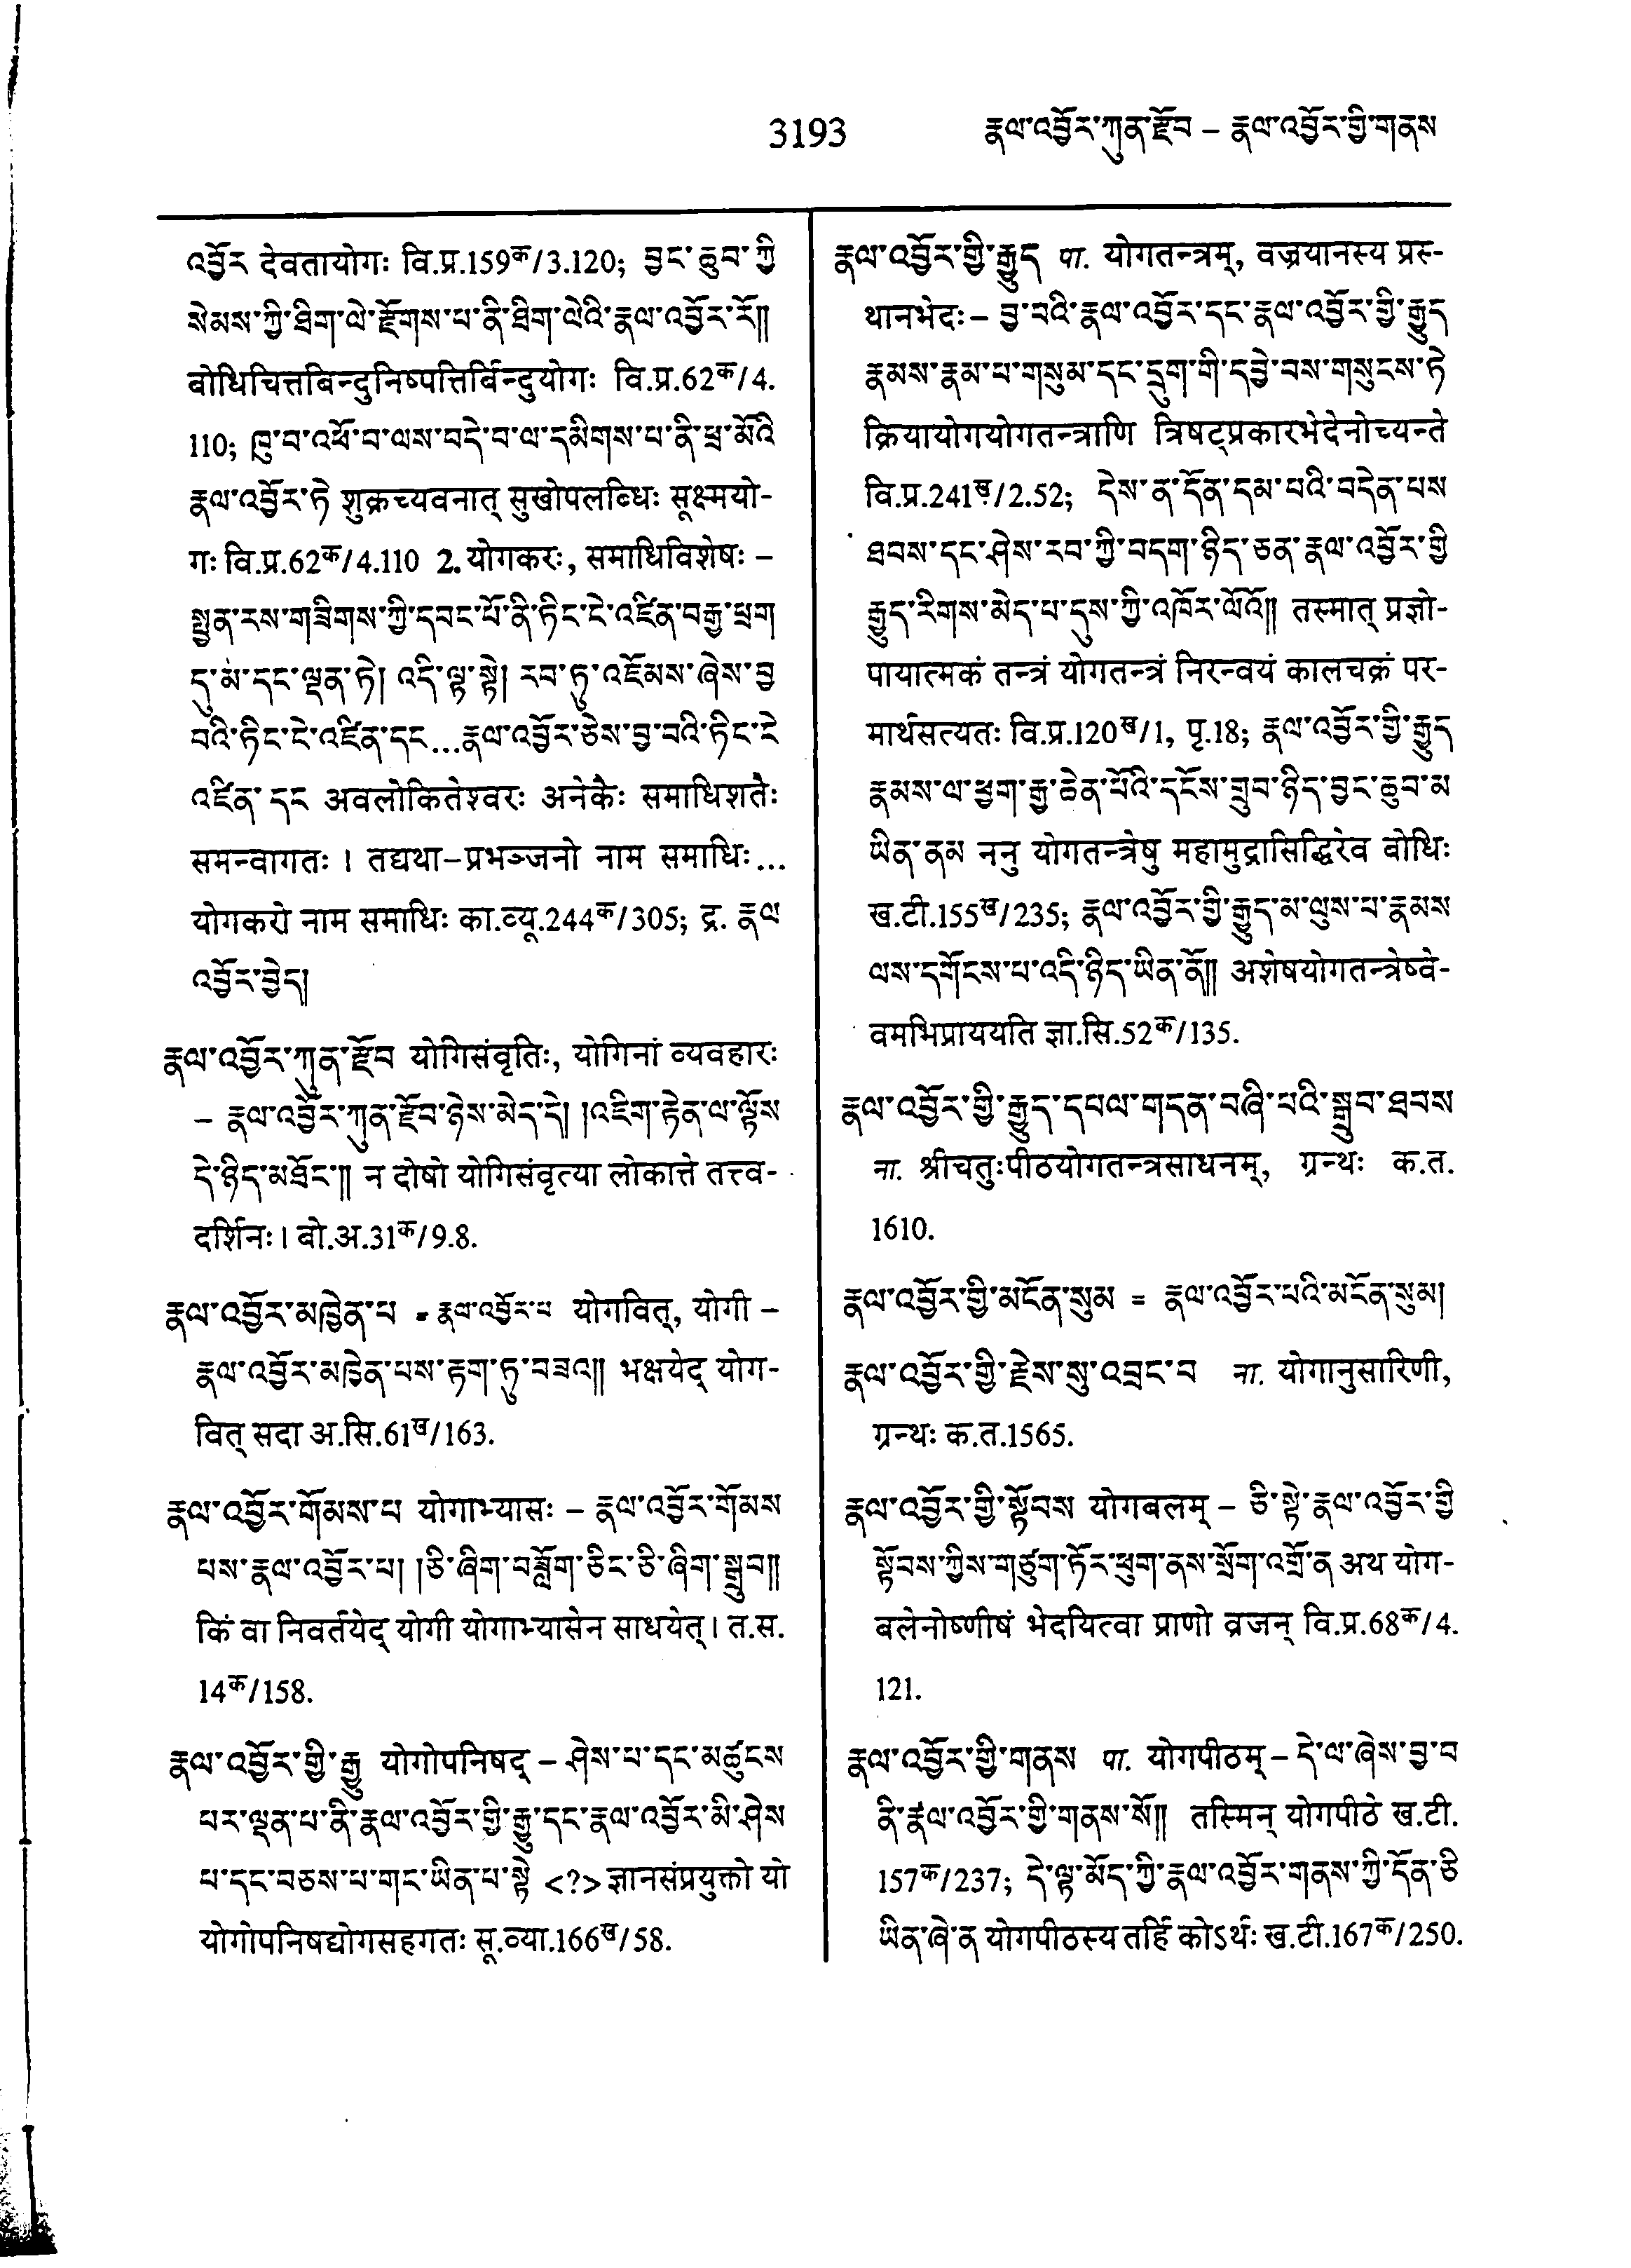 3193 རྣལ་འབྱོར་ཀུན་རྫོབ – རྣལ་འབྱོར་གྱི་གནས
འབྱོར देवतायोगः वि.प्र.159क/3.120; བྱང་ཆུབ་ཀྱི
སེམས་ཀྱི་ཐིག་ལེ་རྫོགས་པ་ནི་ཐིག་ལེའི་རྣལ་འབྱོར་རོ༎
बोधिचित्तबिन्दुनिष्पत्तिर्बिन्दुयोगः वि.प्र.62क/4.
110; ཁུ་བ་འཕོ་བ་ལས་བདེ་བ་ལ་དམིགས་པ་ནི་ཕྲ་མོའི
རྣལ་འབྱོར་ཏེ शुक्रच्यवनात् सुखोपलब्धिः सूक्ष्मयो-
गः वि.प्र.62क/4.110 2. योगकरः, समाधिविशेषः –
སྤྱན་རས་གཟིགས་ཀྱི་དབང་པོ་ནི་ཏིང་ངེ་འཛིན་བརྒྱ་ཕྲག
དུ་མ་དང་ལྡན་ཏེ། འདི་ལྟ་སྟེ། རབ་ཏུ་འཇོམས་ཞེས་བྱ
བའི་ཏིང་ངེ་འཛིན་དང...རྣལ་འབྱོར་ཅེས་བྱ་བའི་ཏིང་ངེ
འཛིན་དང अवलोकितेश्वरः अनेकैः समाधिशतैः
समन्वागतः । तद्यथा–प्रभञ्जनो नाम समाधिः...
योगकरो नाम समाधिः का.व्यू.244क/305; द्र. རྣལ
འབྱོར་བྱེད།
རྣལ་འབྱོར་ཀུན་རྫོབ योगिसंवृतिः, योगिनां व्यवहारः
– རྣལ་འབྱོར་ཀུན་རྫོབ་ཉེས་མེད་དེ། །འཇིག་རྟེན་ལ་ལྟོས
དེ་ཉིད་མཐོང་༎ न दोषो योगिसंवृत्या लोकात्ते तत्त्व-
दर्शिनः । बो.अ.31क/9.8.
རྣལ་འབྱོར་མཁྱེན་པ = རྣལ་འབྱོར་པ योगवित्, योगी –
རྣལ་འབྱོར་མཁྱེན་པས་རྟག་ཏུ་བཟའ༎ भक्षयेद् योग-
वित् सदा अ.सि.61ख/163.
རྣལ་འབྱོར་གོམས་པ योगाभ्यासः – རྣལ་འབྱོར་གོམས
པས་རྣལ་འབྱོར་པ། །ཅི་ཞིག་བཟློག་ཅིང་ཅི་ཞིག་སྒྲུབ༎
किं वा निवर्तयेद् योगी योगाभ्यासेन साधयेत् । त.स.
14क/158.
རྣལ་འབྱོར་གྱི་རྒྱུ योगोपनिषद् – ཤེས་པ་དང་མཚུངས
པར་ལྡན་པ་ནི་རྣལ་འབྱོར་གྱི་རྒྱུ་དང་རྣལ་འབྱོར་མི་ཤེས
པ་དང་བཅས་པ་གང་ཡིན་པ་སྟེ <?> ज्ञानसंप्रयुक्तो यो
योगोपनिषद्योगसहगतः सू.व्या.166ख/58.
རྣལ་འབྱོར་གྱི་རྒྱུད पा. योगतन्त्रम्, वज्रयानस्य प्रस्-
थानभेदः – བྱ་བའི་རྣལ་འབྱོར་དང་རྣལ་འབྱོར་གྱི་རྒྱུད
རྣམས་རྣམ་པ་གསུམ་དང་དྲུག་གི་དབྱེ་བས་གསུངས་ཏེ
क्रियायोगयोगतन्त्राणि त्रिषट्प्रकारभेदेनोच्यन्ते
वि.प्र.241ख/2.52; དེས་ན་དོན་དམ་པའི་བདེན་པས
ཐབས་དང་ཤེས་རབ་ཀྱི་བདག་ཉིད་ཅན་རྣལ་འབྱོར་གྱི
རྒྱུད་རིགས་མེད་པ་དུས་ཀྱི་འཁོར་ལོའོ༎ तस्मात् प्रज्ञो-
पायात्मकं तन्त्रं योगतन्त्रं निरन्वयं कालचक्रं पर-
मार्थसत्यतः वि.प्र.120ख/1, पृ.18; རྣལ་འབྱོར་གྱི་རྒྱུད
རྣམས་ལ་ཕྱག་རྒྱ་ཆེན་པོའི་དངོས་གྲུབ་ཉིད་བྱང་ཆུབ་མ
ཡིན་ནམ ननु योगतन्त्रेषु महामुद्रासिद्धिरेव बोधिः
ख.टी.155ख/235; རྣལ་འབྱོར་གྱི་རྒྱུད་མ་ལུས་པ་རྣམས
ལས་དགོངས་པ་འདི་ཉིད་ཡིན་ནོ༎ अशेषयोगतन्त्रेष्वे-
वमभिप्राययति ज्ञा.सि.52क/135.
རྣལ་འབྱོར་གྱི་རྒྱུད་དཔལ་གདན་བཞི་པའི་སྒྲུབ་ཐབས
ना. श्रीचतुःपीठयोगतन्त्रसाधनम्, ग्रन्थः क.त.
1610.
རྣལ་འབྱོར་གྱི་མངོན་སུམ = རྣལ་འབྱོར་པའི་མངོན་སུམ།
རྣལ་འབྱོར་གྱི་རྗེས་སུ་འབྲང་བ ना. योगानुसारिणी,
ग्रन्थः क.त.1565.
རྣལ་འབྱོར་གྱི་སྟོབས योगबलम् – ཅི་སྟེ་རྣལ་འབྱོར་གྱི
སྟོབས་ཀྱིས་གཙུག་ཏོར་ཕུག་ནས་སྲོག་འགྲོ་ན अथ योग-
बलेनोष्णीषं भेदयित्वा प्राणो व्रजन् वि.प्र.68क/4.
121.
རྣལ་འབྱོར་གྱི་གནས पा. योगपीठम् – དེ་ལ་ཞེས་བྱ་བ
ནི་རྣལ་འབྱོར་གྱི་གནས་སོ༎ तस्मिन् योगपीठे ख.टी.
157क/237; དེ་ལྟ་མོད་ཀྱི་རྣལ་འབྱོར་གནས་ཀྱི་དོན་ཅི
ཡིན་ཞེ་ན योगपीठस्य तर्हि कोऽर्थः ख.टी.167क/250.